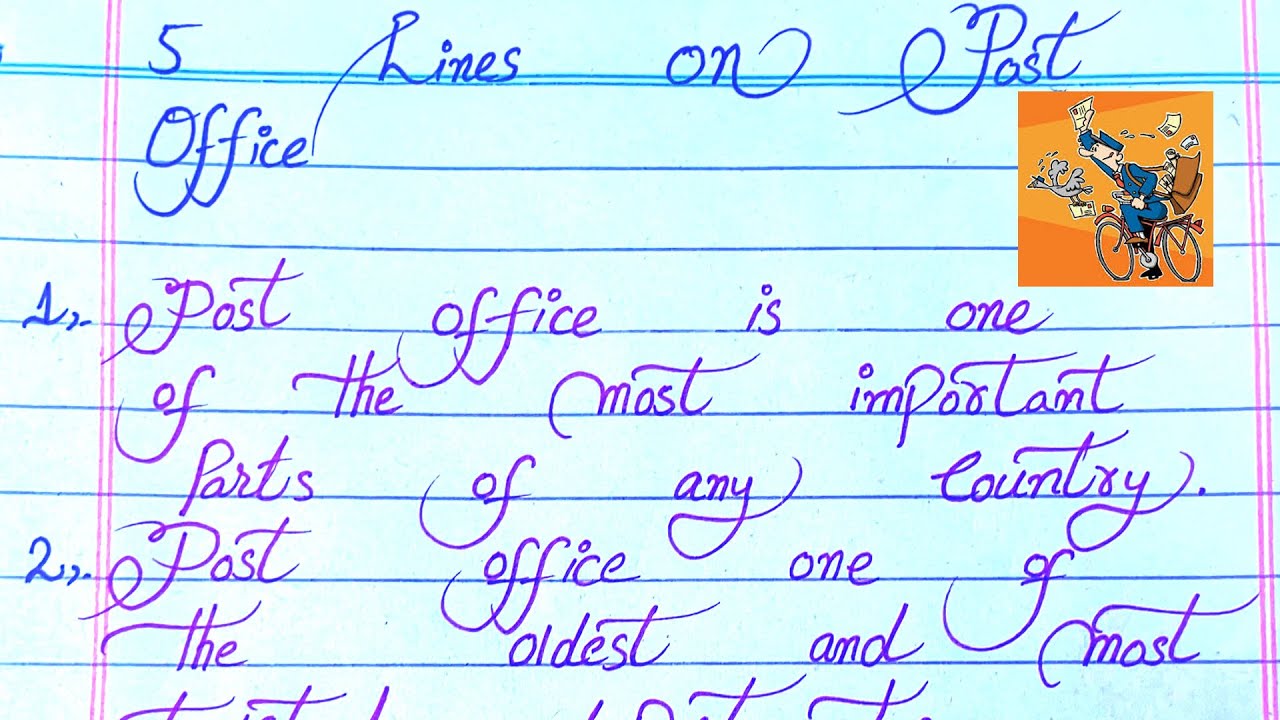 5 Lines on Post
Office
1,. Post office is one
of the most important
Parts of any Country.
2,. Post office one of
the oldest and most